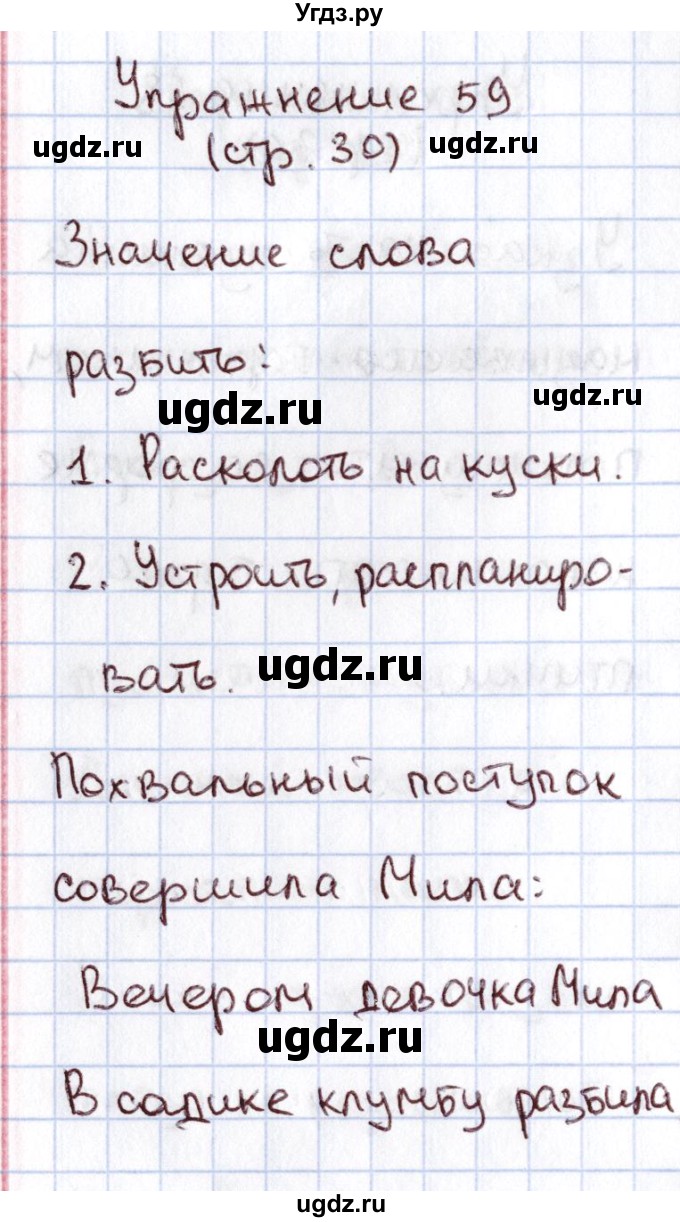 Угдз.ру
Упражнение 59
ugdz.ru (стр. 30) ugdz.ru
Значение слова
разбить:
ugdz.ru ugdz.ru
1. Расколоть на куски.
2. Устроить, распланиро-
ugdz.ru
вать.
Похвальный поступок
совершила Мила:
Вечером девочка Мила
ugdz.ru
В садике клумбу разбила
ugdz.ru